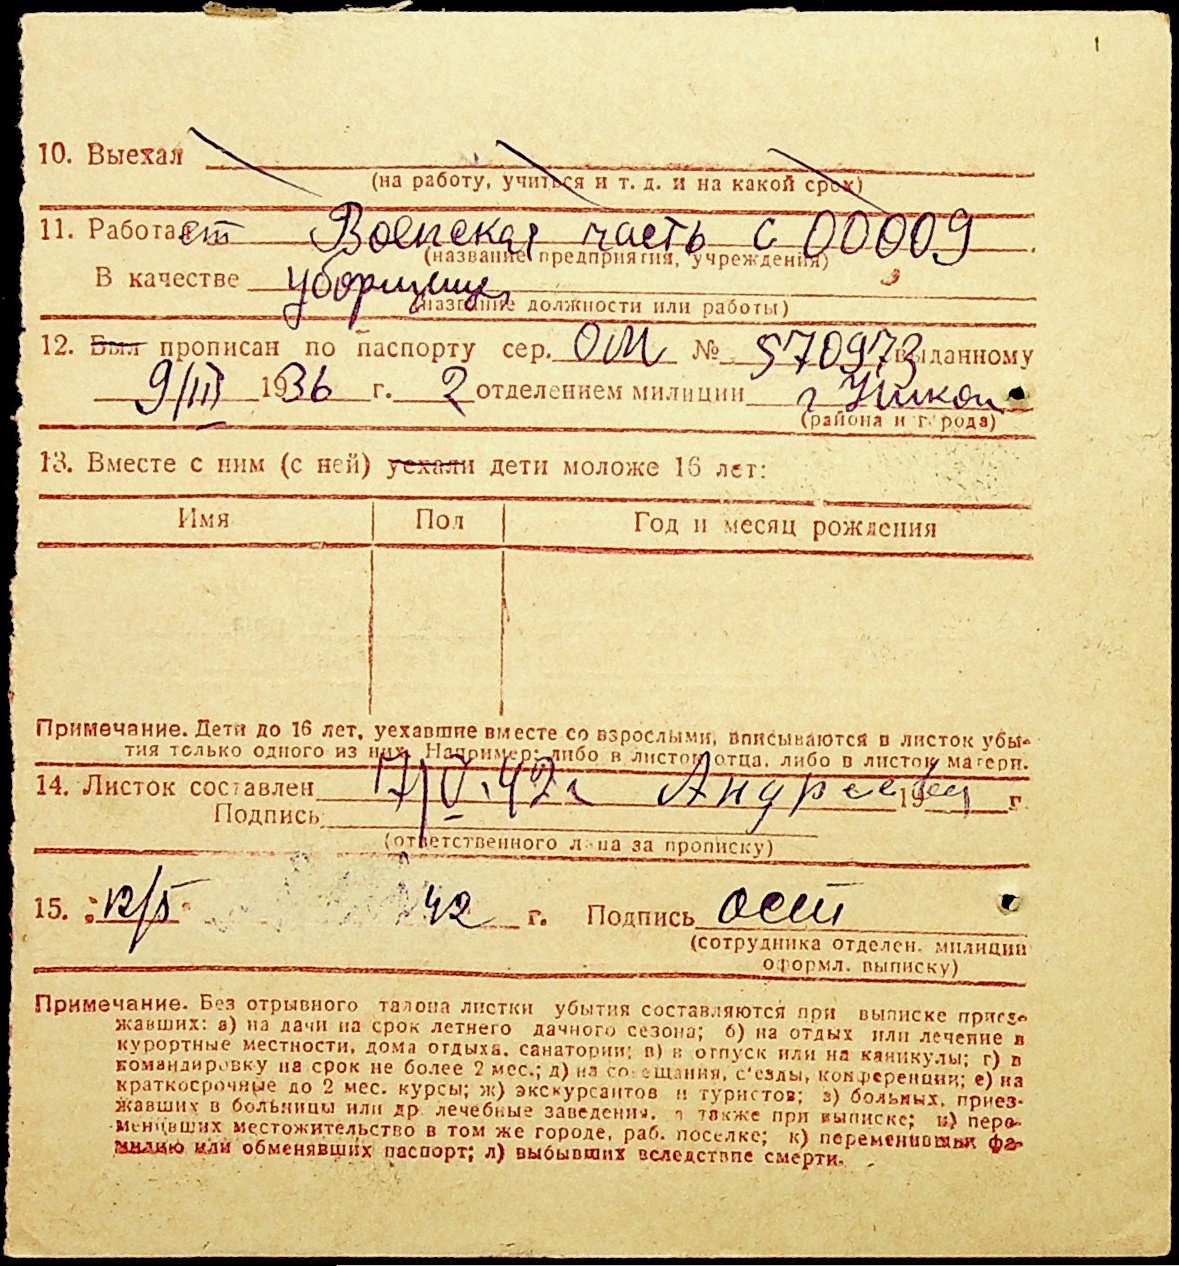 10. Выехал
(на работу, учиться и т. д. и на какой срок)
11. Работает Воинская часть с 00009
(название предприятия, учреждения)
В качестве уборщицы
(название должности или работы)
12. Был прописан по паспорту сер. ОМ № 570973 выданному
9/III 1936 г. 2 отделением милиции г
(района и города)
13. Вместе с ним (с ней) уехали дети моложе 16 лет:
Имя Пол Год и месяц рождения
Примечание. Дети до 16 лет, уехавшие вместе со взрослыми, вписываются в листок убы-
тия только одного из них. Например: либо в листок отца, либо в листок матери.
14. Листок составлен 17/V.42г Андреева 19 г.
Подпись
(ответственного лица за прописку)
15. 42 г. Подпись
(сотрудника отделен. милиции
оформл. выписку)
Примечание. Без отрывного талона листки убытия составляются при выписке приез-
жавших: а) на дачи на срок летнего дачного сезона; б) на отдых или лечение в
курортные местности, дома отдыха, санатории; в) в отпуск или на каникулы; г) в
командировку на срок не более 2 мес.; д) на совещания, с'езды, конференции; е) на
краткосрочные до 2 мес. курсы; ж) экскурсантов и туристов; з) больных, приез-
жавших в больницы или др. лечебные заведения, а также при выписке; и) пере-
менивших местожительство в том же городе, раб. поселке; к) переменивших фа-
милию или обменявших паспорт; л) выбывших вследствие смерти.